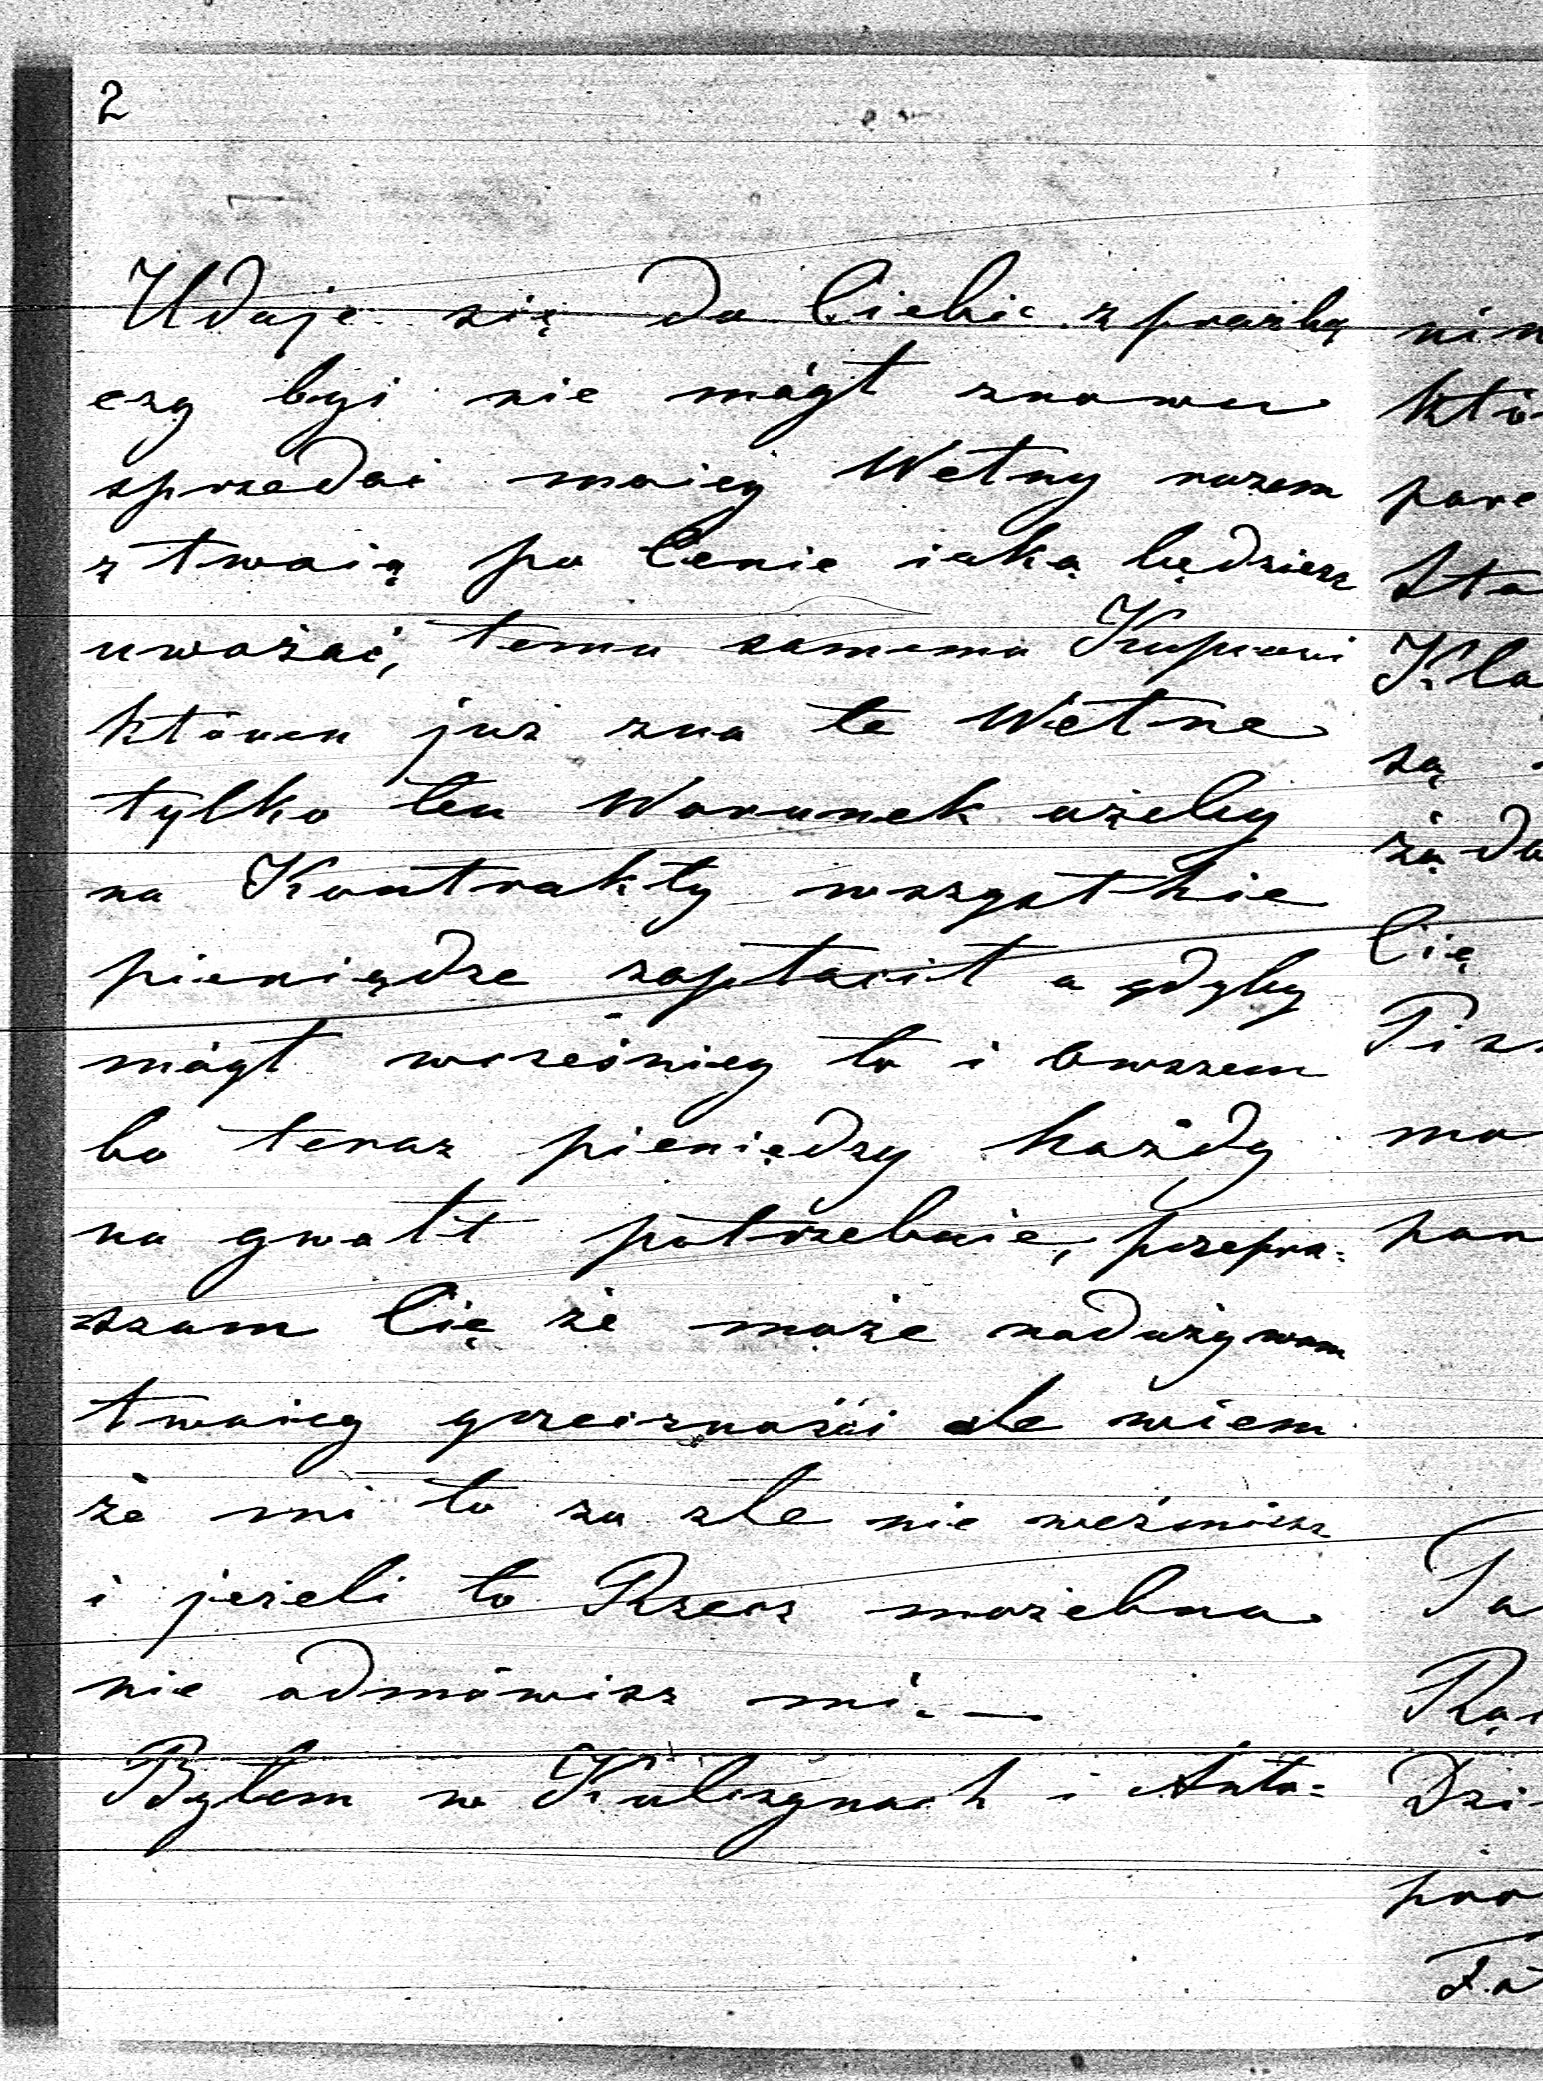 2
Udaje się do Ciebie z prozbą
czy byś nie mógł znowu
sprzedać moiey Wełny razem
z twoią po Cenie iaką będziesz
uważać, temu samemu Kupcowi
któren już zna te Wełne
tylko ten Warunek ażeby
na Kontrakty wszystkie
pieniądze zapłacił a gdyby
mógł wcześniey to i owszem
bo teraz pieniędzy każdy
na gwałt potrzebuie, przepra=
=szam Cię że może nadużywam
twoiey grzeczności ale wiem
że mi to za złe nie weźmiesz
i jeżeli to Rzecz możebna
nie odmówisz mi. —
Byłem w Kuliszynach i Anto=
nin
któ
pare
Sta
Kla
są
żąda
Cię
Pis
mo
pan
Ta
Dzi